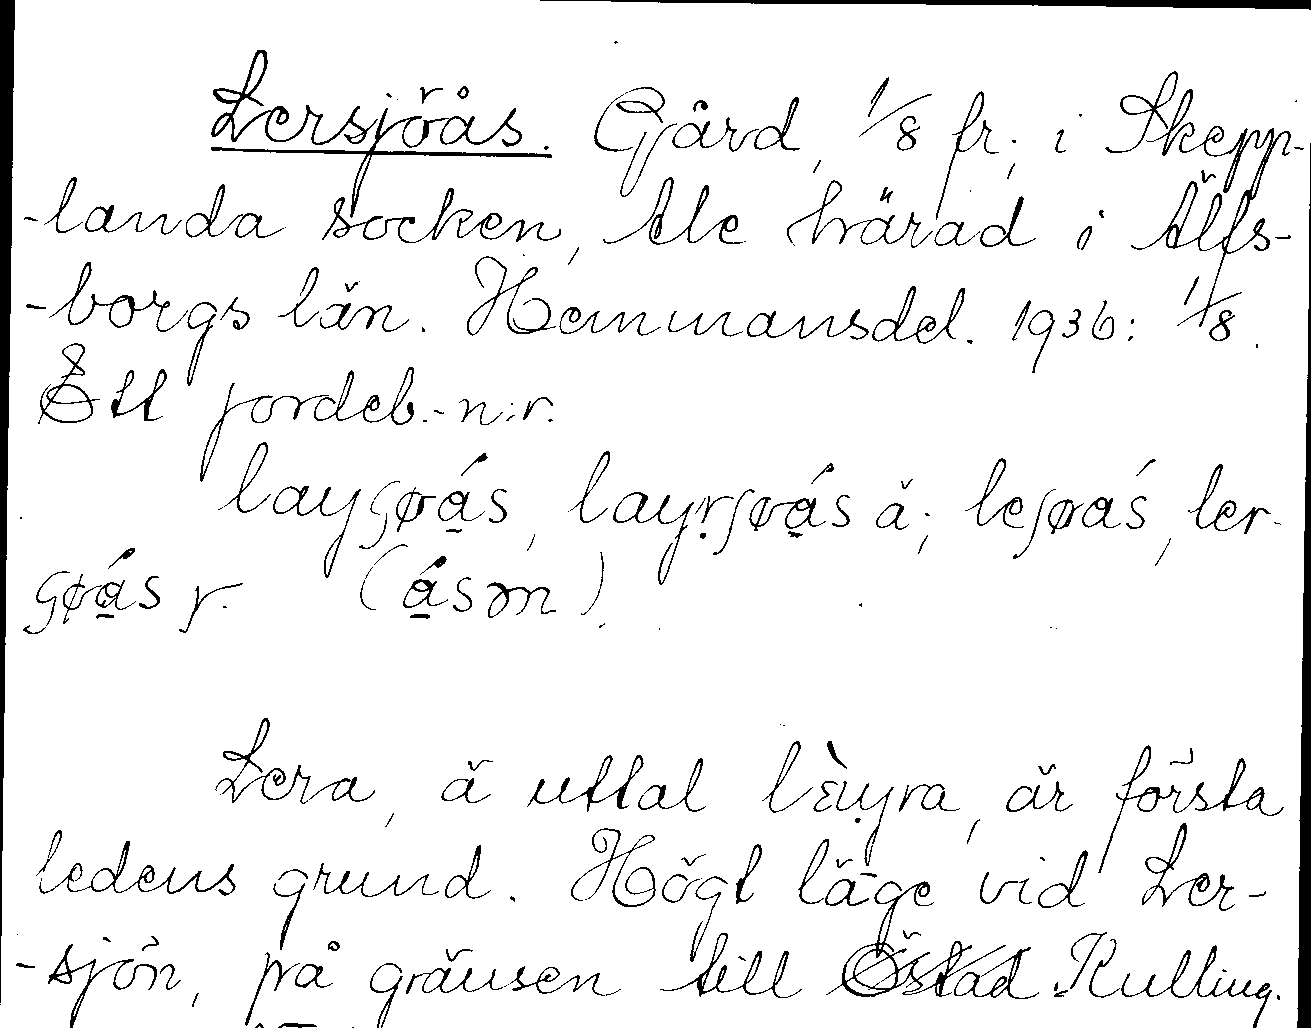 Lersjöås. Gård, 1/8 fr, i Skepp-
-landa socken, Ale härad i Älfs-
-borgs län. Hemmansdel. 1936: 1/8.
Ett jordeb.-n:r.
layʂøás, layrʂøás ä; leʂøás, ler-
ʂøás y. (ásən)
Lera, ä uttal lɛ̀yra, är första
ledens grund. Högt läge vid Ler-
-sjön, på gränsen till Östad Kulling.